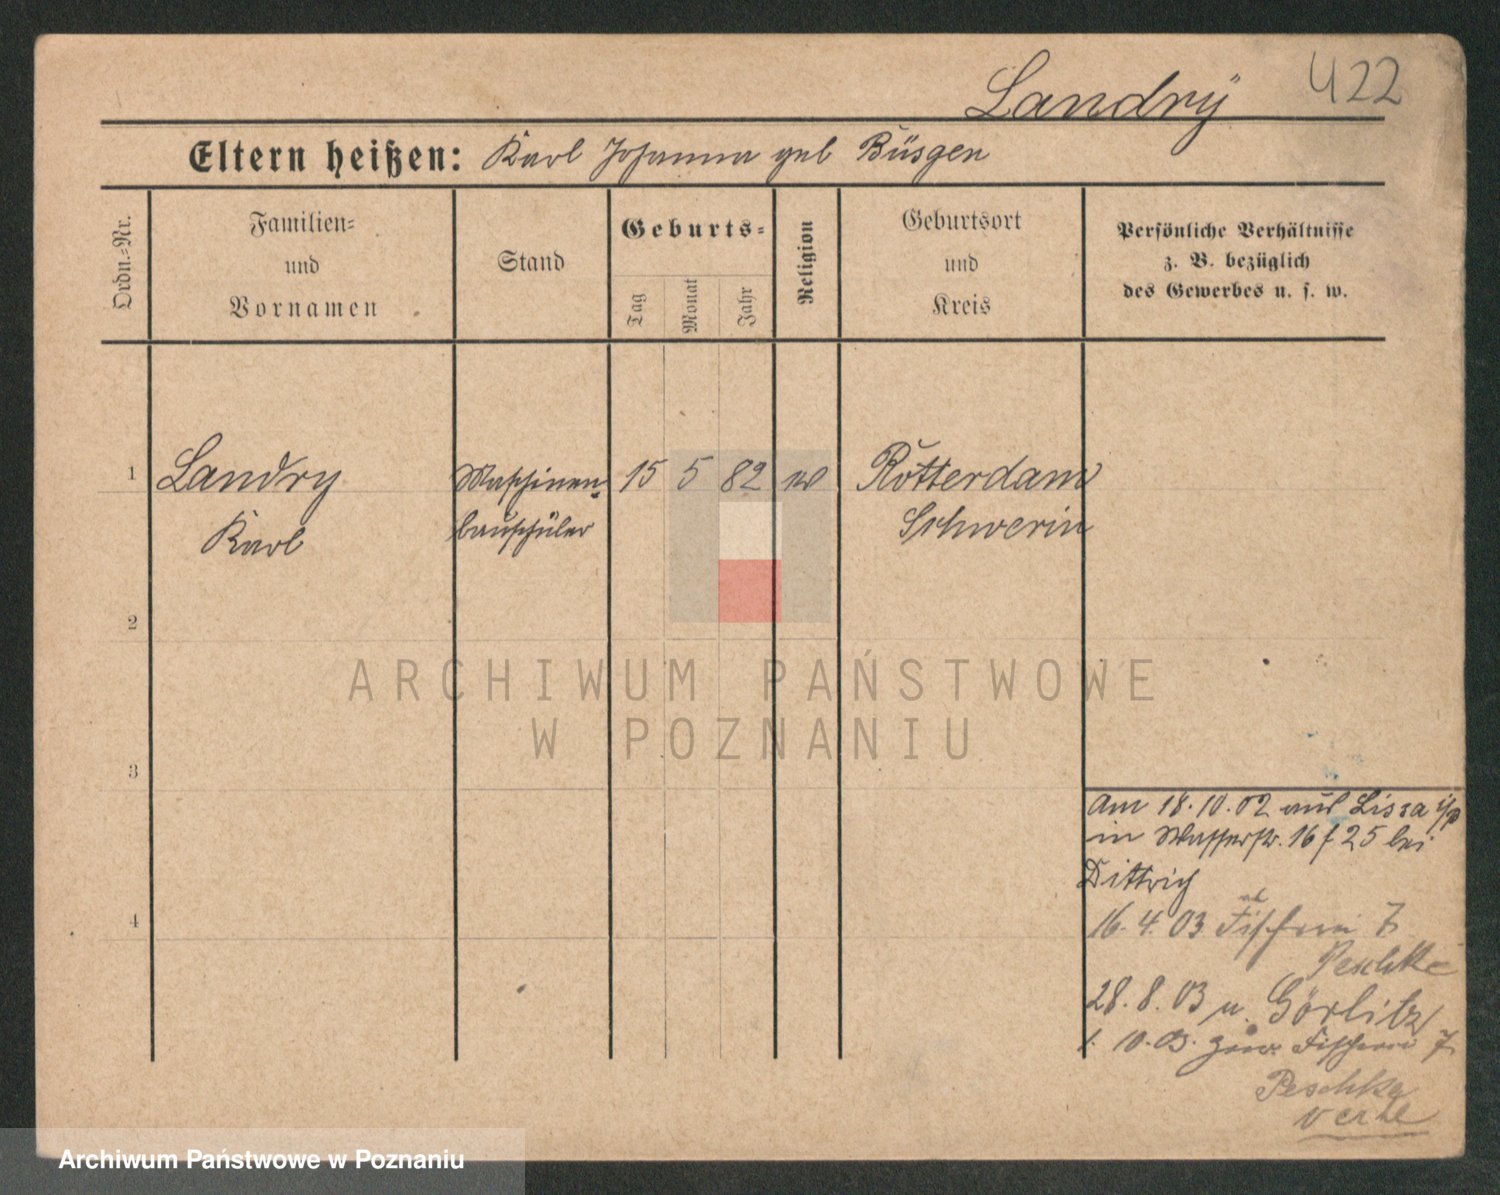 Landrÿ 422
Eltern heißen: Karl Johanna geb Büsgen
Ordn.-Nr.
Familien-
und
Vornamen
Stand
Geburts-
Tag
Monat
Jahr
Religion
Geburtsort
und
Kreis
Persönliche Verhältnisse
z. B. bezüglich
des Gewerbes u. s. w.
1 Landry Maschinen- 15 5 82 Rotterdam
Karl bauschüler Schwerin
2
3
4
Am 18.10.02 aus Lissa i/p
in Wasserstr. 16 f 25 bei
Dittrich
16.4.03 Fischerei 7
Peschke
28.8.03 n. Görlitz
1.10.03. Fischerei 7
Peschke
ARCHIWUM PAŃSTWOWE
W POZNANIU
Archiwum Państwowe w Poznaniu